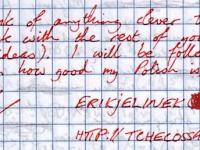 of anything clever t
k with the rest of you
ideas). I will be follo
how good my Polish is
ERIKJELINEK
HTTP://TCHECOSSE